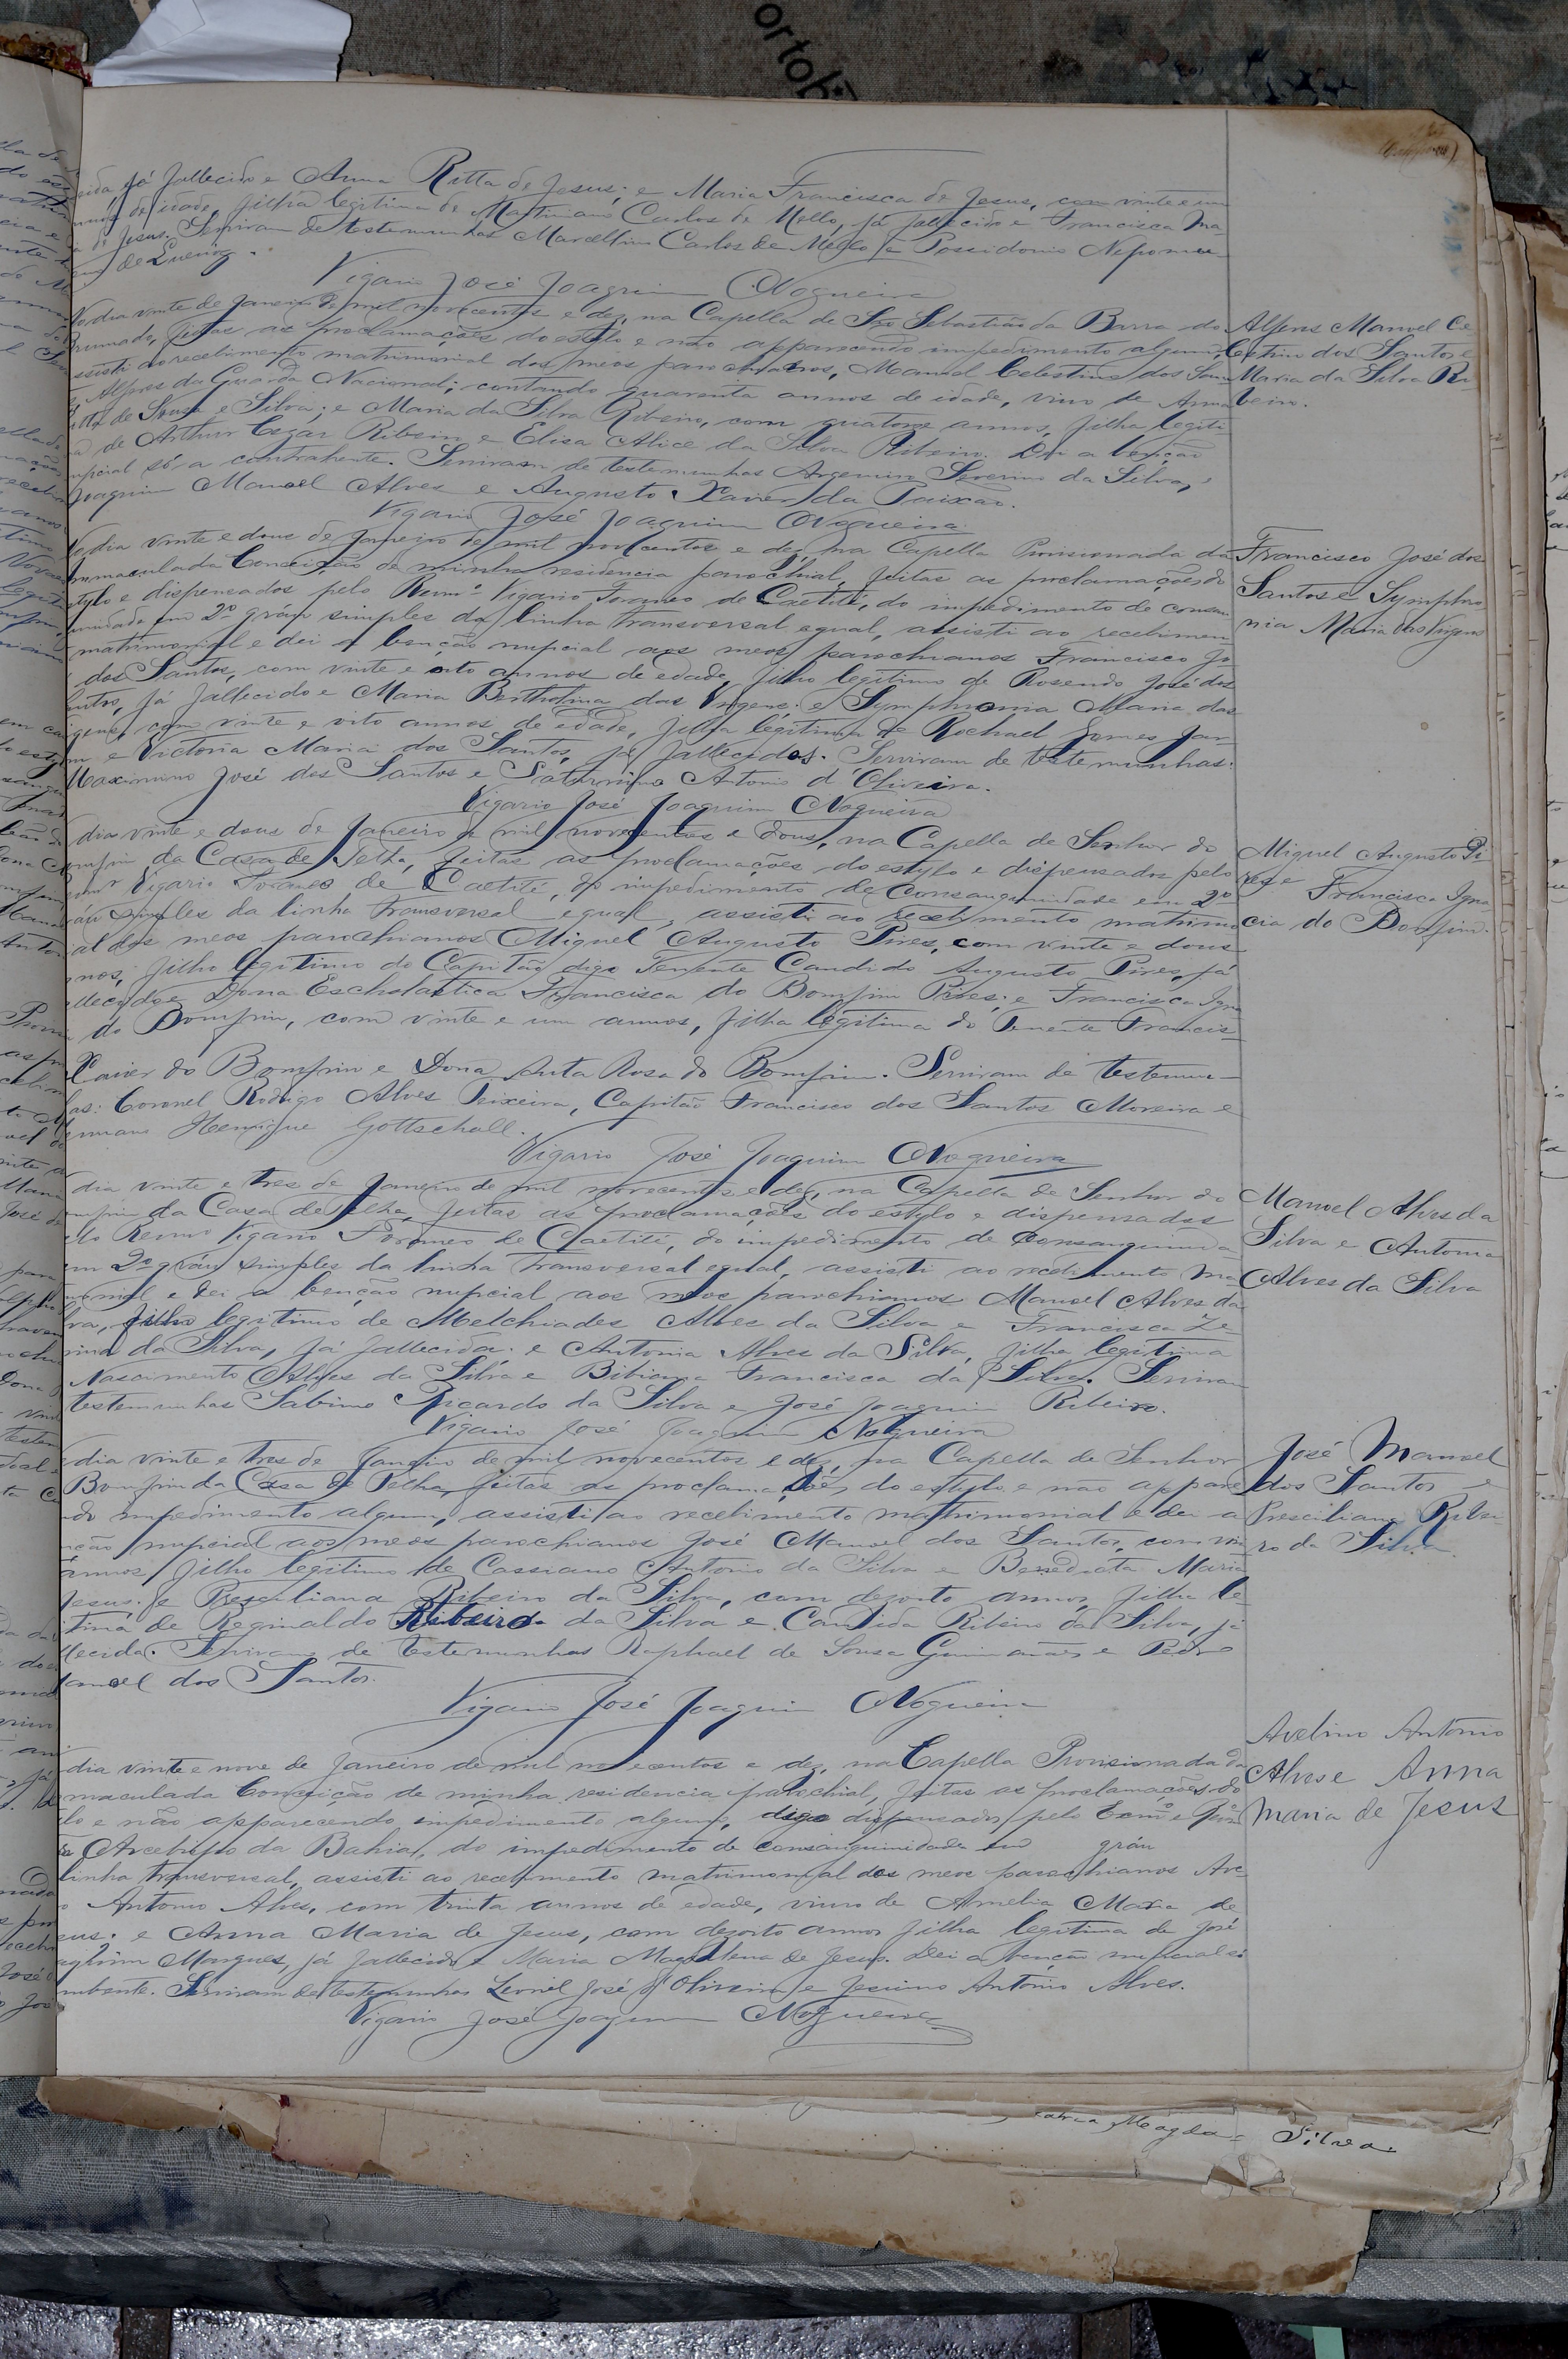 já fallecido e Anna Ritta de Jesus; e Maria Francisca de Jesus, com vinte e um
annos de idade, filha legitima de Martiniano Carlos de Mello, já fallecido e Francisca Ma
de Jesus. Serviram de testemunhas Marcellino Carlos de Mello e Possidonio Nepomu
de Queiroz.
Vigario José Joaquim Nogueira
dia vinte de Janeiro de mil novecentos e dez, na Capella de São Sebastião da Barra do
Brumado, feitas as proclamações do estylo e não apparecendo impedimento algum,
assisti ao recebimento matrimonial dos meos parochianos, Manoel Celestino dos San
Alferes da Guarda Nacional; contando quarenta annos de idade, viuvo de Anna
de Sousa e Silva; e Maria da Silva Ribeiro, com quatorze annos, filha legiti
de Arthur Cezar Ribeiro e Elisa Alice da Silva Ribeiro. Dei a benção
nupcial só a contrahente. Serviram de testemunhas Argemiro Severino da Silva,
Joaquim Manoel Alves e Augusto Xavier da Paixão.
Vigario José Joaquim Nogueira
Alferes Manoel Ce
lestino dos Santos e
Maria da Silva Ri
beiro.
dia vinte e dous de Janeiro de mil novecentos e dez, na Capella Provisionada da
Immaculada Conceição de minha residencia parochial, feitas as proclamações do
estylo e dispensados pelo Revmº Vigario Foraneo de Caetité, do impedimento de consan
guinidade em 2º gráu simples da linha transversal egual, assisti ao recebimen
matrimonial e dei a benção nupcial aos meos parochianos Francisco Jo
dos Santos, com vinte e oito annos de edade, filho legitimo de Rosendo José dos
já fallecido e Maria Bertholina das Virgens; e Symphronia Maria das
com vinte e oito annos de edade, filha legitima de Rochael Gomes
e Victoria Maria dos Santos, já fallecidos. Serviram de testemunhas:
Maximino José dos Santos e Saturnino Antonio d'Oliveira.
Vigario José Joaquim Nogueira
Francisco José dos
Santos e Symphro
nia Maria das Virgens
dia vinte e dous de Janeiro de mil novecentos e dous, na Capella de Senhor do
da Casa de Telha, feitas as proclamações do estylo e dispensados pelo
Vigario Foraneo de Caetité, do impedimento de consanguinidade em 2º
gráu simples da linha transversal egual, assisti ao recebimento matrimo
al dos meos parochianos Miguel Augusto Pires, com vinte e dous
filho legitimo do Capitão digo Tenente Candido Augusto Pires, já
e Dona Escholastica Francisca do Bomfim Pires; e Francisca Igna
do Bomfim, com vinte e um annos, filha legitima do Tenente Francis
Xavier do Bomfim e Dona Anta Rosa do Bomfim. Serviram de testemu
has: Coronel Rodrigo Alves Teixeira, Capitão Francisco dos Santos Moreira e
Henrique Gottschall.
Vigario José Joaquim Nogueira
Miguel Augusto Pi
res e Francisca Igna
cia do Bomfim.
dia vinte e tres de Janeiro de mil novecentos e dez, na Capella de Senhor do
da Casa de Telha, feitas as proclamações do estylo e dispensados
Revmº Vigario Foraneo de Caetité, do impedimento de consanguinida
em 2º gráu simples da linha transversal egual, assisti ao recebimento ma
e dei a benção nupcial aos meos parochianos Manoel Alves da
filho legitimo de Melchiades Alves da Silva e Francisca Ze
da Silva, já fallecida; e Antonia Alves da Silva, filha legitima
Nascimento Alves da Silva e Bibiana Francisca da Silva. Serviram
testemunhas Sabino Ricardo da Silva e José Joaquim Ribeiro.
Vigario José Joaquim Nogueira
Manoel Alves da
Silva e Antonia
Alves da Silva
dia vinte e tres de Janeiro de mil novecentos e dez, na Capella de Senhor
Bomfim da Casa de Telha, feitas as proclamações do estylo e não appare
do impedimento algum, assisti ao recebimento matrimonial e dei a
nupcial aos meos parochianos José Manoel dos Santos, com vin
annos, filho legitimo de Cassiano Antonio da Silva e Benedicta Maria
Jesus; e Presciliana Ribeiro da Silva, com dezoito annos, filha le
tima de Reginaldo Ribeiro da Silva e Candida Ribeiro da Silva, já
lecida. Serviram de testemunhas Raphael de Sousa Guimarães e Pedro
Manoel dos Santos.
Vigario José Joaquim Nogueira
José Manoel
dos Santos e
Presciliana Ribei
ro da Silva
dia vinte e nove de Janeiro de mil novecentos e dez, na Capella Provisionada da
maculada Conceição de minha residencia parochial, feitas as proclamações do
lo e não apparecendo impedimento algum, digo dispensados pelo Exmº e
Arcebispo da Bahia, do impedimento de consanguinidade em gráu
linha transversal, assisti ao recebimento matrimonial dos meos parochianos Ave
Antonio Alves, com trinta annos de edade, viuvo de Amelia Maria de
sus; e Anna Maria de Jesus, com dezoito annos filha legitima de José
Marques, já fallecido e Maria Magdalena de Jesus. Dei a benção nupcial só
nubente. Serviram de testemunhas Leonel José d'Oliveira e Jesuino Antonio Alves.
Vigario José Joaquim Nogueira
Avelino Antonio
Alves e Anna
Maria de Jesus
Magda
Silva